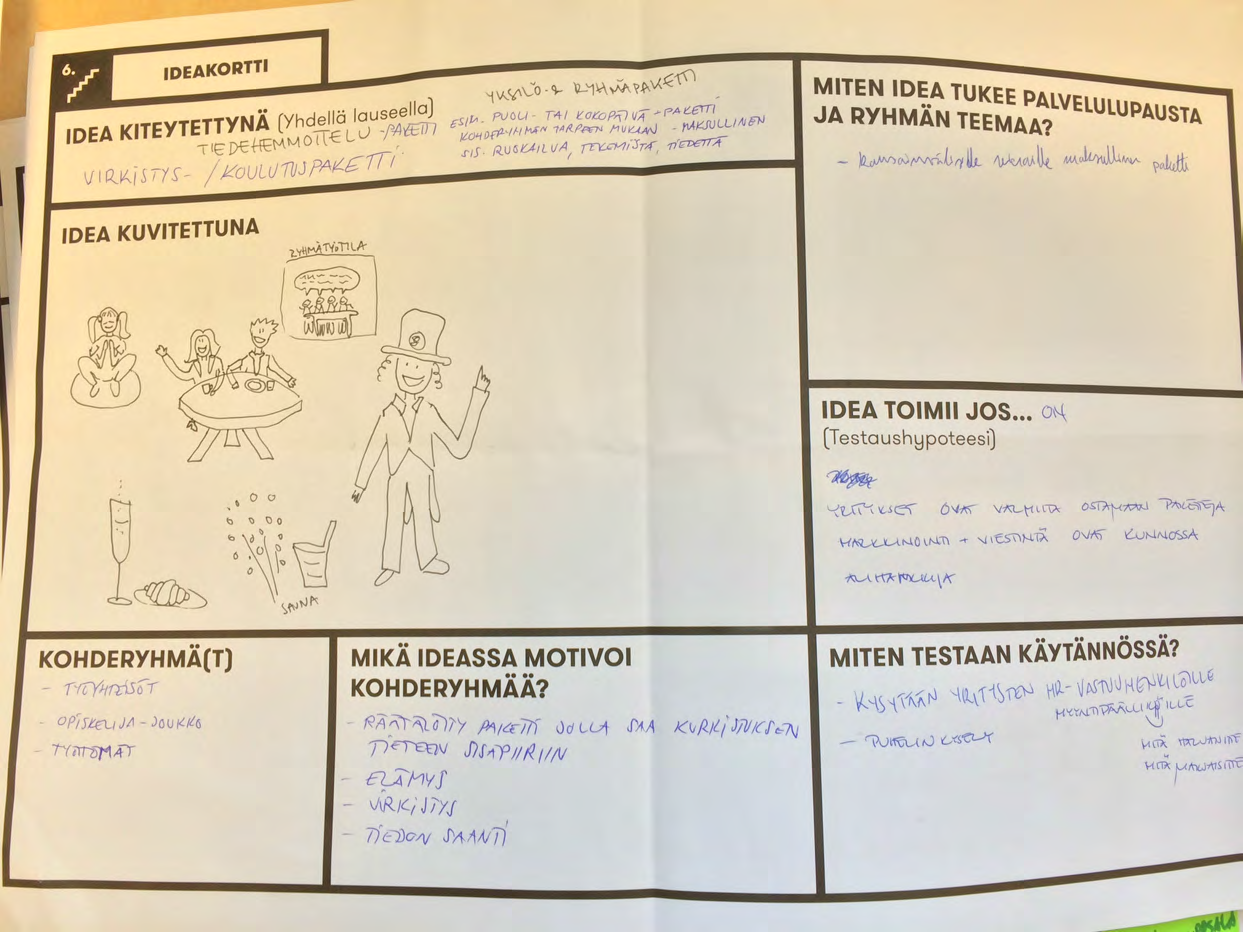 6.
IDEAKORTTI
IDEA KITEYTETTYNÄ (Yhdellä lauseella)
TIEDEHEMMOTTELU-PAKETTI
VIRKISTYS- / KOULUTUSPAKETTI
YKSILÖ- & RYHMÄPAKETTI
ESIM. PUOLI- TAI KOKOPÄIVÄ-PAKETTI
KOHDERYHMÄN TARPEEN MUKAAN - MAKSULLINEN
SIS. RUOKAILUA, TEKEMISTÄ, TIEDETTÄ
MITEN IDEA TUKEE PALVELULUPAUSTA
JA RYHMÄN TEEMAA?
- maksullinen paketti
IDEA KUVITETTUNA
RYHMÄTYÖTILA
SAUNA
IDEA TOIMII JOS... ON
(Testaushypoteesi)
YRITYKSET OVAT VALMIITA OSTAMAAN PAKETEJA
MARKKINOINTI + VIESTINTÄ OVAT KUNNOSSA
KOHDERYHMÄ(T)
- TYÖYHTEISÖT
- OPISKELIJA-JOUKKO
- TYÖTTÖMÄT
MIKÄ IDEASSA MOTIVOI
KOHDERYHMÄÄ?
- RÄÄTÄLÖITY PAKETTI JOLLA SAA KURKISTUKSEN
TIETEEN SISÄPIIRIIN
- ELÄMYS
- VIRKISTYS
- TIEDON SAANTI
MITEN TESTAAN KÄYTÄNNÖSSÄ?
- KYSYTÄÄN YRITYSTEN HR-VASTUUHENKILÖILLE
MYYNTIPÄÄLLIKÖILLE
- PUHELINKYSELY
MITÄ
MITÄ